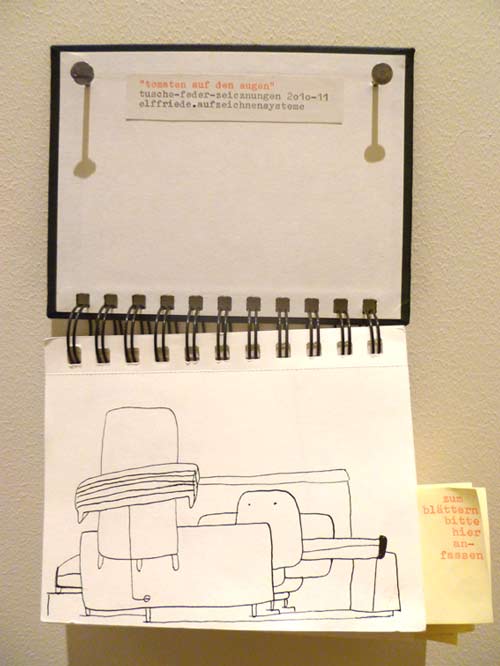 "tomaten auf den augen"
tusche-feder-zeicznungen 2o1o-11
elffriede.aufzeichnensysteme
zum
blättern
bitte
hier
an-
fassen